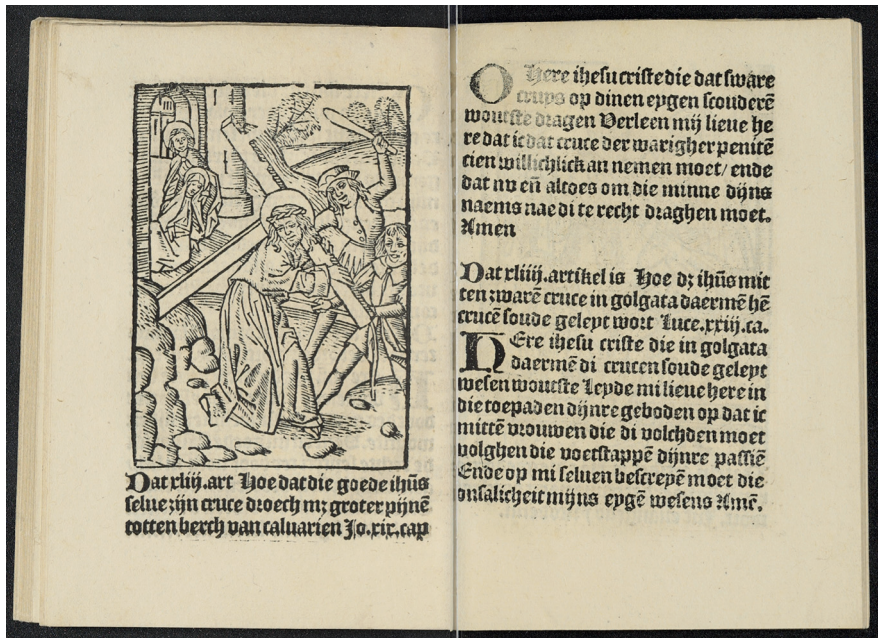 Dat xliij.art Hoe dat die goede ihūs
selue zijn cruce droech mz groter pijnē
totten berch van caluarien Jo.xix.cap
O Here ihesu criste die dat sware
cruys op dinen eygen scouderē
woutste dragen Verleen mij lieue he
re dat ic dat cruce der warigher penitē
cien willichlick an nemen moet/ ende
dat nv eñ altoes om die minne dijns
naems nae di te recht draghen moet.
Amen
Dat xliiij.artikel is Hoe dz ihūs mit
ten zwarē cruce in golgata daermē hē
crucē soude geleyt wort Luce.xxiij.ca.
HEre ihesu criste die in golgata
daermē di crucen soude geleyt
wesen woutste Leyde mi lieue here in
die toepaden dijnre geboden op dat ic
mittē vrouwen die di volchden moet
volghen die voetstappē dijnre passiē
Ende op mi seluen bescreyen moet die
onsalicheit mijns eygē wesens Amē.